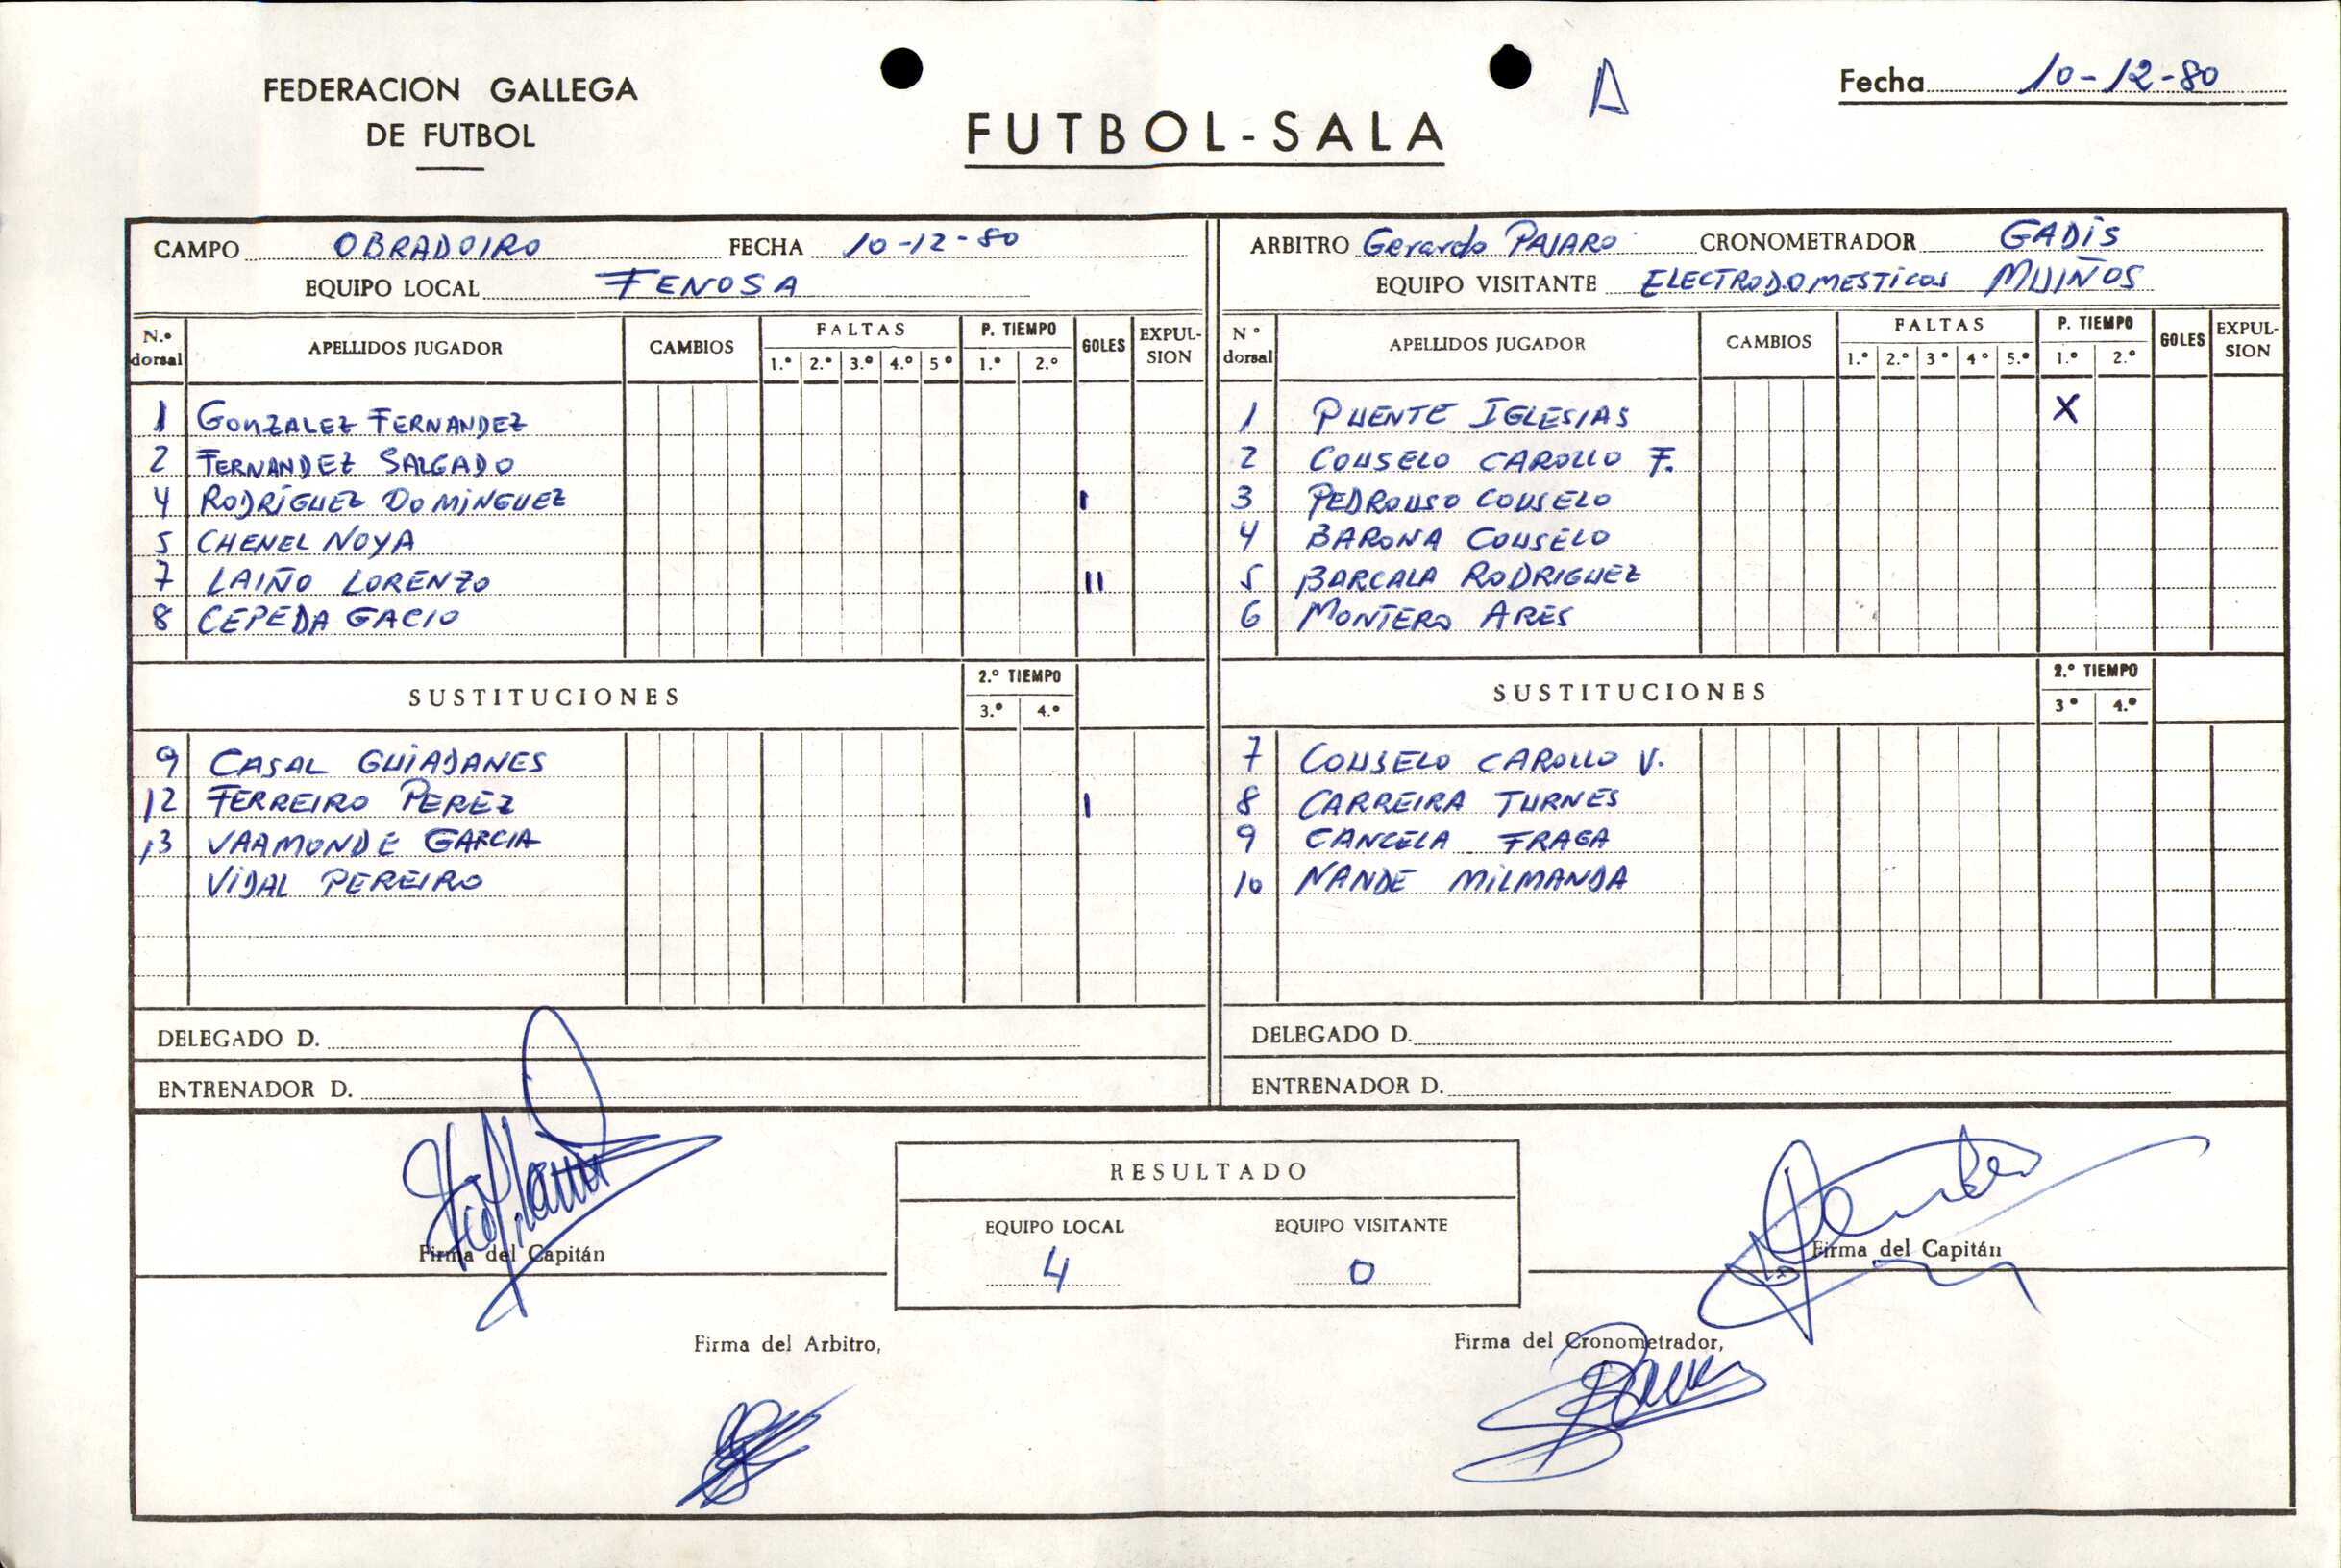 FEDERACION GALLEGA
DE FUTBOL
FUTBOL-SALA
A
Fecha 10-12-80
CAMPO OBRADOIRO FECHA 10-12-80
EQUIPO LOCAL FENOSA
N.º dorsal APELLIDOS JUGADOR CAMBIOS FALTAS 1.º 2.º 3.º 4.º 5º P. TIEMPO 1.º 2.º GOLES EXPULSION
1 GONZALEZ FERNANDEZ
2 FERNANDEZ SALGADO
4 RODRÍGUEZ DOMINGUEZ I
5 CHENEL NOYA
7 LAIÑO LORENZO II
8 CEPEDA GACIO
SUSTITUCIONES 2.º TIEMPO 3.º 4.º
9 CASAL GUIADANES
12 FERREIRO PEREZ I
13 VAAMONDE GARCIA
VIDAL PEREIRO
DELEGADO D.
ENTRENADOR D.
ARBITRO Gerardo PAJARO CRONOMETRADOR GADIS
EQUIPO VISITANTE ELECTRODOMESTICOS MUIÑOS
Nº dorsal APELLIDOS JUGADOR CAMBIOS FALTAS 1.º 2.º 3º 4º 5.º P. TIEMPO 1.º 2.º GOLES EXPULSION
1 PUENTE IGLESIAS X
2 COUSELO CAROLLO F.
3 PEDROUSO COUSELO
4 BARONA COUSELO
5 BARCALA RODRIGUEZ
6 MONTERO ARES
SUSTITUCIONES 2.º TIEMPO 3º 4.º
7 COUSELO CAROLLO V.
8 CARREIRA TURNES
9 CANCELA FRAGA
10 NANDE MILMANDA
DELEGADO D.
ENTRENADOR D.
Firma del Capitán
RESULTADO
EQUIPO LOCAL EQUIPO VISITANTE
4 0
Firma del Capitán
Firma del Arbitro,
Firma del Cronometrador,